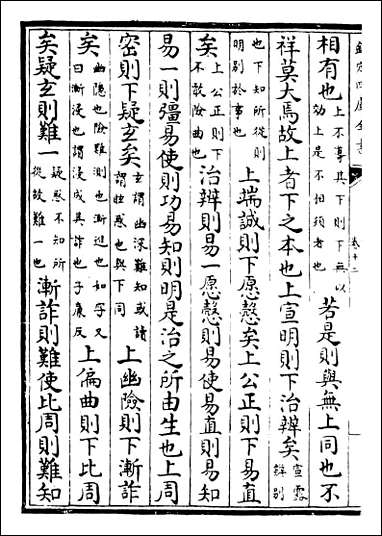 欽定四庫全書 卷十二
相有也上不導其下則下無以効上是不相須者也若是則與無上同也不
祥莫大焉故上者下之本也上宣明則下治辨矣宣露辨別
也下知所從則明別於事也上端誠則下愿慤矣上公正則下易直
矣上公正則下不敢險曲也治辨則易一愿慤則易使易直則易知
易一則彊易使則功易知則明是治之所由生也上周
密則下疑玄矣玄謂幽深難知或讀謂眩惑也與下同上幽險則下漸詐
矣幽隱也險難測也漸進也如字又曰漸浸也謂浸成其詐也子廉反上偏曲則下比周
矣疑玄則難一疑惑不知所從故難一也漸詐則難使比周則難知